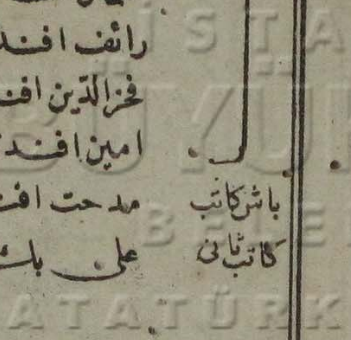 رائف افند
فخرالدین افند
امین افند
باش كاتب مدحت افند
كاتب ثانی علی بك